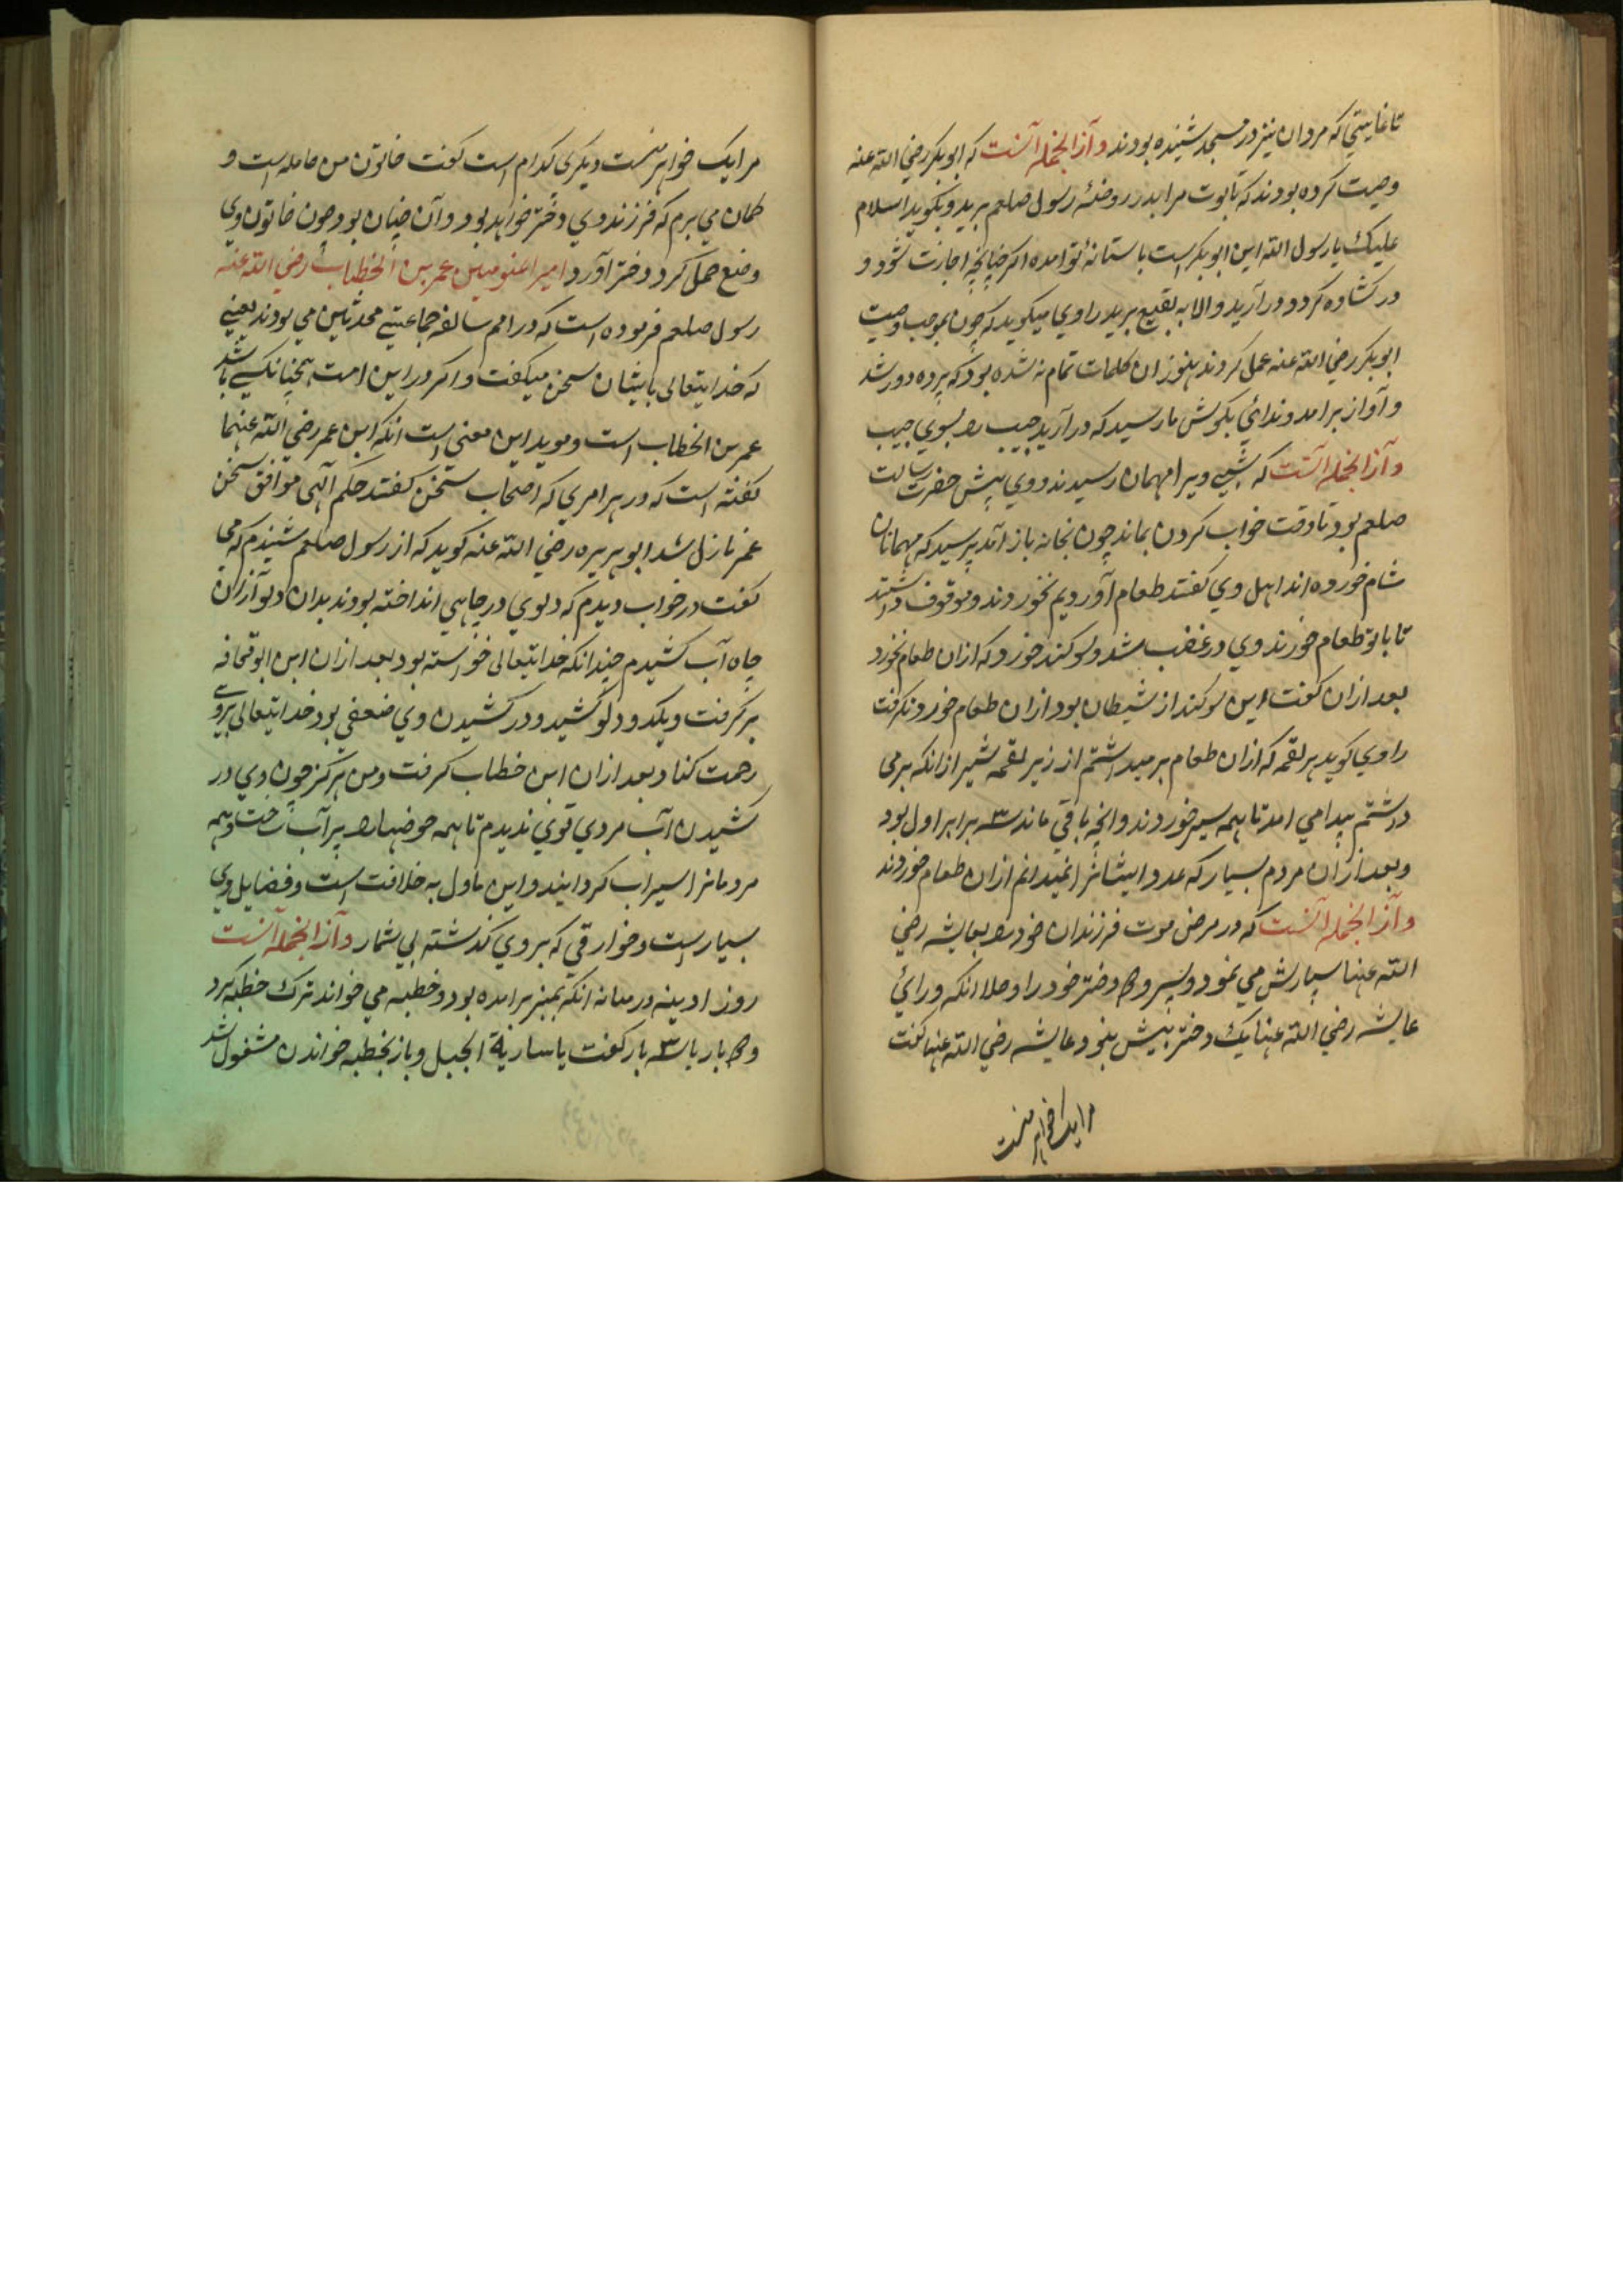 تا غایتی که مردان نیز در مسجد شنیده بودند و از الجمله آنست که ابوبکر رضی الله عنه
وصیت کرده بودند که تابوت مرا بدر روضهٔ رسول صلعم برید و بکوید السلام
علیک یا رسول الله این ابوبکر است باستانهٔ تو امده اکر چنانچه اجازت شود و
در کشاده کردد در آرید والا به بقیع برید راوی میکوید که چون بموجب وصیت
ابوبکر رضی الله عنه عمل کردند هنوز ان کلمات تمام نشده بود که پرده دور شد
و آواز برامد و ندائی بکوش ما رسید که در آرید حبیب را بسوی حبیب
و از الجمله آنست که شبی ویرا مهمان رسیدند و وی پیش حضرت رسالت
صلعم بود تا وقت خواب کردن بماند چون بخانه باز آمد پرسید که مهمانان
شام خورده اند اهل وی کفتند طعام آوردیم نخوردند و موقوف داشتند
تا با تو طعام خورند وی در غضب شد و سوکند خورد که ازان طعام نخورد
بعد ازان کفت این سوکند از شیطان بود ازان طعام خوردن کرفت
راوی کوید هر لقمه که ازان طعام بر میداشتم از زیر لقمه بیشتر ازانکه بر می
داشتم پیدا می امد تا همه سیر خوردند و انچه باقی ماند سه برابر اول بود
و بعد ازان مردم بسیار که عدد ایشانرا نمیدانم ازان طعام خوردند
و از الجمله آنست که در مرض موت فرزندان خود را بعایشه رضی
الله عنها سپارش می نمود و پسر و دو دختر خود را و حال انکه ورائ
عایشه رضی الله عنها یک دختر بیش نبود عایشه رضی الله عنها کفت
مرا یک خواهر منست
مرا یک خواهر منست دیکری کدام است کفت خاتون من حامله است و
کمان می برم که فرزند وی دختر خواهد بود و آن چنان بود چون خاتون وی
وضع حمل کرد دختر آورد امیر المؤمنین عمر بن الخطاب رضی الله عنه
رسول صلعم فرموده است که در امم سالفه جماعتی محدثین می بودند یعنی
که خدایتعالی با ایشان سخن میکفت و اکر در این امت همچنانکسی باشد
عمر بن الخطاب است و موید این معنی است انکه ابن عمر رضی الله عنهما
کفته است که در هر امری که اصحاب سخن کفتند حکم آلهی موافق سخن
عمر نازل شد ابو هریره رضی الله عنه کوید که از رسول صلعم شنیدم که می
کفت در خواب دیدم که دلوی در چاهی انداخته بودند بدان دلو ازان
چاه آب کشیدم چندانکه خدایتعالی خواسته بود بعد ازان ابن ابو قحافه
بر کرفت و یکدو دلو کشید و در کشیدن وی ضعفی بود خدایتعالی بروی
رحمت کناد و بعد ازان ابن خطاب کرفت و من هرکز چون وی در
کشیدن آب مردی قوی ندیدم تا همه حوضها را پر آب ساخت و همه
مردمانرا سیراب کردانید و این ماول به خلافت است و فضایل وی
بسیار است و خوارقی که بر وی کذشته بی شمار و از الجمله آنست
روز ادینه در میانه انکه بمنبر برامده بود و خطبه می خواند ترک خطبه کرد
و دو بار یا سه بار کفت یا ساریة الجبل و باز بخطبه خواندن مشغول شد